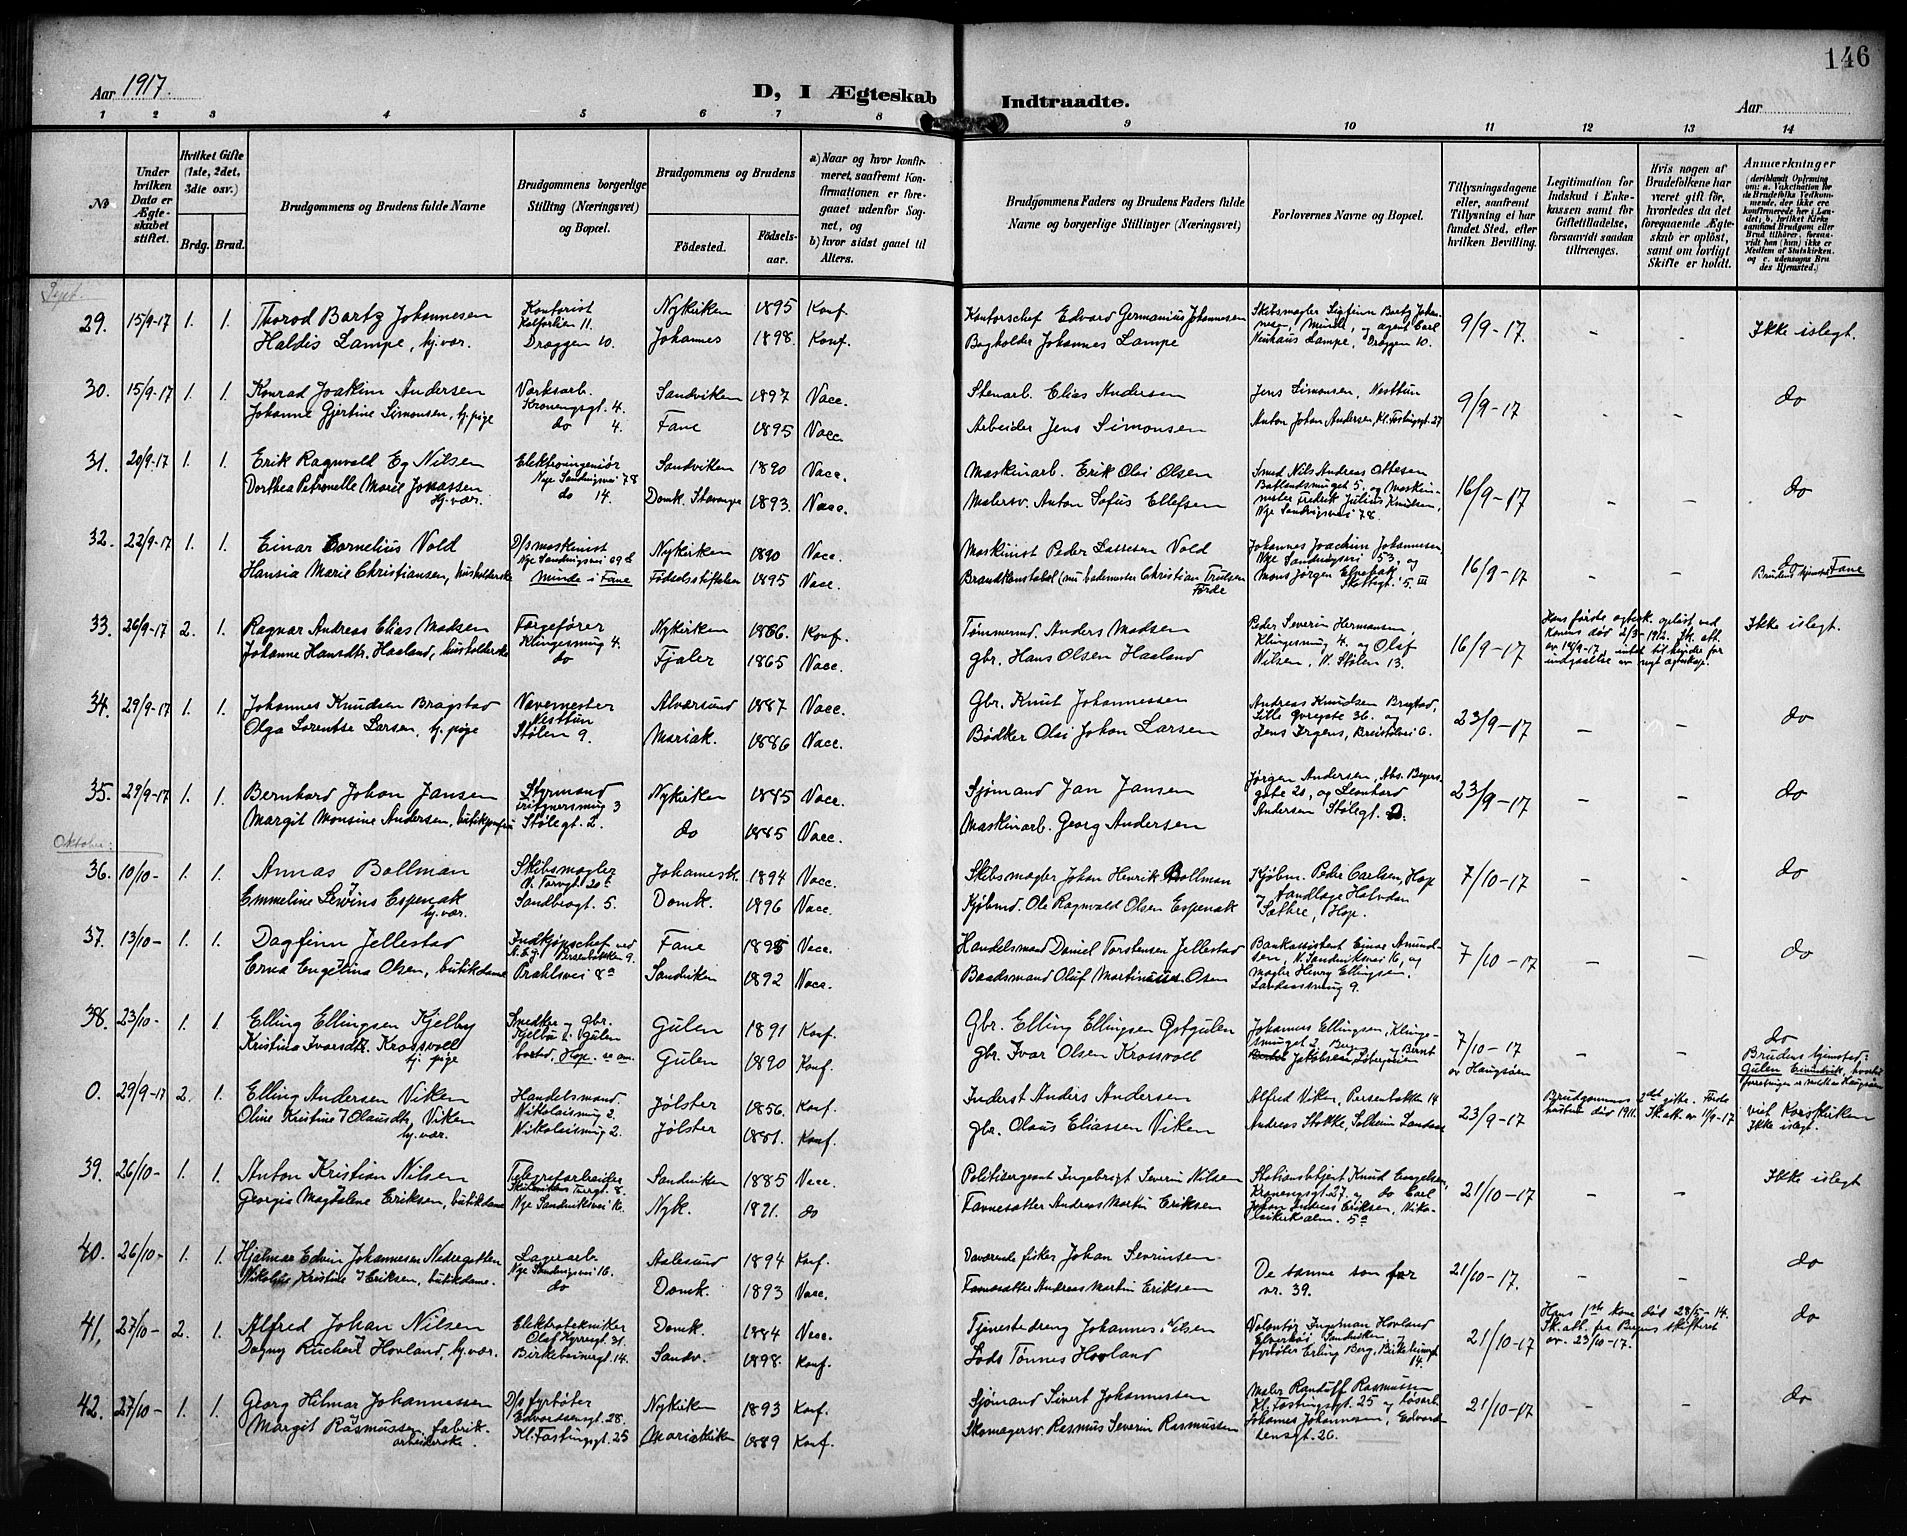 146
Aar 1917.
D, I Ægteskab Indtraadte.
Aar
1 2 3 4 5 6 7 8 9 10 11 12 13 14
№
Under hvilken Dato er Ægteskabet stiftet.
Hvilket Gifte (1ste, 2det, 3die osv.)
Brdg. Brud.
Brudgommens og Brudens fulde Navne
Brudgommens borgerlige Stilling (Næringsvei) og Bopæl.
Brudgommens og Brudens
Fødested. Fødselsaar.
a) Naar og hvor konfirmeret, saafremt Konfirmationen er foregaaet udenfor Sognet, og
b) hvor sidst gaaet til Alters.
Brudgommens Faders og Brudens Faders fulde Navne og borgerlige Stillinger (Næringsvei)
Forlovernes Navne og Bopæl.
Tillysningsdagene eller, saafremt Tillysning ei har fundet Sted, efter hvilken Bevilling.
Legitimation for Indskud i Enkekassen samt for Giftetilladelse, forsaavidt saadan tiltrænges.
Hvis nogen af Brudefolkene har været gift før, hvorledes da det foregaaende Ægteskab er opløst, samt om lovligt Skifte er holdt.
Anmærkninger (deriblandt Oplysning om: a. Vakcination for de Brudefolks Vedkommende, der ikke ere konfirmerede her i Landet; b. hvilket Kirkesamfund Brudgom eller Brud tilhører, forsaavidt han (hun) ikke er Medlem af Statskirken, og c. udensogns Brudes Hjemsted.)
Sept.
29. 15/9-17 1. 1. Thorod Bartz Johannesen Kontorist Kalfarlien 11. Nykirken 1895 Konf Kontorschef Edvard Germanius Johannesen 9/9-17. - - Ikke islegt.
Haldis Lampe, hj.vær. Dræggen 10. Johannes 1898. Konf. Bogholder Johannes Lampe Neuhaus Lampe, Dræggen 10.
30. 15/9-17 1. 1. Konrad Joakim Andersen Værksarb. Kroneng​sgt. 4. Sandviken 1897 Vacc. Stenarb. Elias Andersen Jens Simonsen, Nesttun 9/9-17 - - do
Johanne Gjertine Simonsen, hj.pige do 4. Fane 1895 Vacc. Arbeider Jens Simonsen Anton Johan Andersen, Kl. Fastingsgt. 27
31. 20/9-17 1. 1. Erik Ragnvald Eg Nilsen Elektroingeniør Nye Sandvigsvei 78 Sandviken 1890 Vacc. Maskinarb. Erik Olai Olsen Smed Nils Andreas Ottesen 16/9-17 - - do
Dorthea Petronelle Marie Jonassen hj.vær. do 14. Domk. Stavanger 1893. Vacc. Malersv. Anton Sofus Ellefsen mester Fredrik Julius Knudsen, Nye Sandvigsvei 78.
32. 22/9-17 1. 1. Einar Cornelius Vold D/s maskinist Nye Sandvigsvei Nykirken 1890 Vacc. Maskinist Peder Larsen Vold Johannes Joachim Johannesen Nye Sandvigsvei 53, og 16/9-17 - - do
Hansia Marie Christiansen, husholderske Minde i Fane Fødselsstiftelsen 1895 Vacc. Brandkonstabel (nu bademester) Christian Trulsen Førde Mons Jørgen Espetvedt Skottegt. 5 III Brudens hjemsted Fane
33. 26/9-17 2. 1. Ragnar Andreas Elias Madsen Færgefører Klingesmug 4. Nykirken 1866. Konf. Tømmermd. Anders Madsen Peder Severin Hermansen, Klingesmug 4. og Olaf Nilsen, N. Stølen 13. 16/9-17 Hans første egtesk. opløst ved konens død 2/3-1912. Sk. att. av 18/9-17, intet til hinder for indgaaelse av nyt egteskap. Ikke islegt.
Johanne Hansdtr. Haaland, husholderske do Fjaler 1865 Vacc. gbr. Hans Olsen Haaland
34. 29/9-17 1. 1. Johannes Knudsen Bragstad Vævemester Nesttun Alversund 1887 Vacc. Gbr. Knut Johannessen Andreas Knudsen Bragstad, Lille Øvregate 36. og 23/9-17 - - do
Olga Lorentse Larsen, hj. pige Stølen 9. Mariak. 1886 Vacc. Bødker Olai Johan Larsen Jens Irgens, Breistølsvei 6.
35. 29/9-17 1. 1. Bernhard Johan Jansen Styrmand Nykirken 1885 Vacc. Sjømand Jan Jansen Jørgen Andersen, Abs. Beyersgate 20, og Leonhard 23/9-17 - - do
Margit Monsine Andersen, butikjomfru Stølegt. 2. do 1885 Vacc. Maskinarb. Georg Andersen Andersen Stølegt. 2.
Oktober:
36. 10/10- 1. 1. Annas Bollman Skibsmægler N. Torvgt. 20 Johannesk. 1894 Vacc. Skibsmægler Johan Henrik Bollman Kjøbm. Peder Carlsen, Hop 7/10-17 - - do
Emmeline Espenak hj.vær. Sandbrogt. 5. Domk. 1896 Vacc. Kjøbmd. Ole Ragnvald Olsen Espenak Tandlæge Halvdan Sæthre, Hop.
37. 13/10- 1. 1. Dagfinn Jellestad Indkjøpschef ved Fane 1895 Vacc. Handelsmand Daniel Torstensen Jellestad Bankassistent Einar Amundsen, N. Sandviksvei 16, og 7/10-17 - - do
Erna Engelina Olsen, butikdame Prahlsvei 8a Sandviken 1892 Vacc. Baadsmand Oluf Martinussen Olsen mægler Henry Ellingsen,
38. 23/10- 1. 1. Elling Ellingsen Kjelby Smedker og Gbr. Kjelbø i Gulen Gulen 1891 Konf. Gbr. Elling Ellingsen Østgulen Johannes Ellingsen, Klingesmuget 2 7/10-17 av Haugsøen - - do
Kristina Ivarsdtr. Krossvoll hj. pige bosted, Hop. Gulen 1890 Konf. gbr. Ivar Olsen Krossvoll Brudens hjemstad: Gulen Eivindvik,
0. 29/9-17 2. 1. Elling Andersen Viken Handelsmand. Nikolaismug 2. Jølster 1856. Konf. Inderst Anders Andersen Alfred Viken, Persenbakke 14 23/9-17 Brudgommens 2det gifte. Første hustru død 1911. Sk. att. av 11/9-17 viet Korskirken
Oline Kristine Olausdtr. Viken hj.vær. Nikolaismug 2. Jølster 1881. Konf. gbr. Olaus Eliassen Viken Andreas Stokke, Solheim Landaas Ikke islegt.
39. 26/10- 1. 1. Anton Kristian Nilsen Telegrafarbeider Sandviken 1885 Vacc. Politisergeant Ingebrigt Severin Nilsen Stationsbetjent Knud Engelsen, Kronengsgt. 27. og do Carl 21/10-17 - - Ikke islegt
Georgia Magdalene Eriksen, butikdame Nye Sandviksvei 16. Nyk. 1891. do Favnesætter Andreas Martin Eriksen Johan Andreas Eriksen, Nikolaikirkealm. 5a
40. 26/10- 1. 1. Hjalmar Edvin Johannesen Nedregotten Lagerarb. Nye Sandvigsvei 16. Aalesund 1894 Konf. Daværende fisker Johan Sevrinsen De samme som for nr. 39. 21/10-17. - - do
Nikoline Kristine Eriksen, butikdame. do Domk. 1893 Vacc. Favnesætter Andreas Martin Eriksen
41, 27/10- 2. 1. Alfred Johan Nilsen Elektrotekniker Olaf Kyrresgt 31. Domk. 1884 Vacc. Tjenestedreng Johannes Nilsen Volontør Ingolman Hovland 21/10-17 Hans 1ste kone død 28/5-14. Sk. att. fra Bergens skifteret av 23/10-17. do
Dagny Hovland, hj.vær. Birkebeinergt. 14. Sandv. 1898. Konf. Lods Tønnes Hovland fyrbøter Erling Berg, Birkebeinergt 14.
42. 27/10- 1. 1. Georg Hilmar Johannessen D/s fyrbøter Edvardsensgt. 28. Nykirken 1893 Konf. Sjømand Sivert Johannessen Maler Randulf Rasmussen Kl. Fastingsgt. 25 og løsarb. 21/10-17 - - do
Margit Rasmussen, fabrikarbeiderske Kl. Fastingsgt. 25 Mariakirken 1889 Konf. Skomagersv. Rasmus Severin Rasmussen Johannes Johannesen, Edvardsensgt. 26.